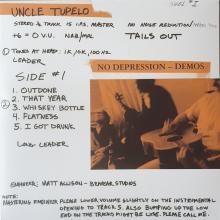 UNCLE TUPELO
STEREO ½ TRACK 15 I.P.S. MASTER
NO NOISE REDUCTION
+6 = 0.V.U. NAB/MAL
TAILS OUT
TONES AT HEAD: 1K, 10K, 100 HZ
LEADER
NO DEPRESSION – DEMOS
SIDE #1
1. OUTDONE
2. THAT YEAR
3. WHISKEY BOTTLE
4. FLATNESS
5. I GOT DRUNK
LONG LEADER
ENGINEER: MATT ALLISON – BEDROOM STUDIOS
NOTE:
MASTERING ENGINEER PLEASE LOWER VOLUME SLIGHTLY ON THE INSTRUMENTAL
OPENING TO TRACK 5. ALSO BUMPING UP THE LOW
END ON THE TRACKS MIGHT BE WISE. PLEASE CALL ME.